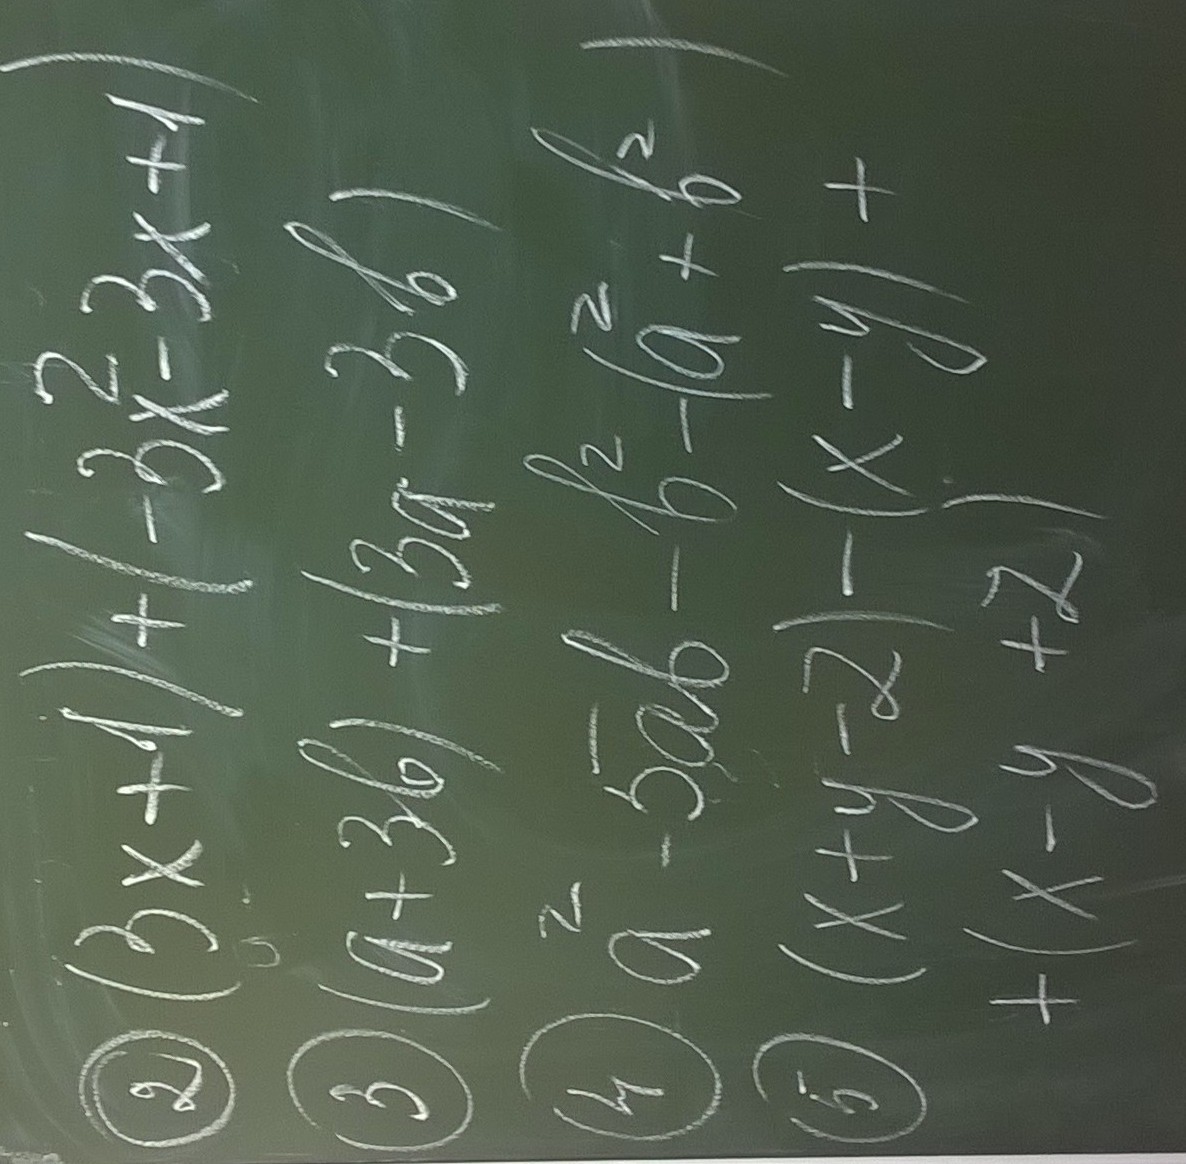 ② (3x+1)+(-3x²-3x+1)
③ (a+3b)+(3a-3b)
④ a²-5ab-b²-(a²+b²)
⑤ (x+y-2)-(x-y)+
+(x-y+2)